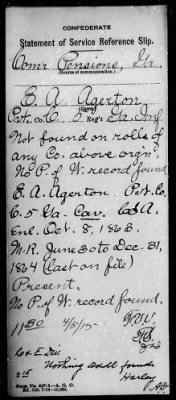 CONFEDERATE
Statement of Service Reference Slip.
Comr Pensions, Ga.
(Source of communication.)
E. A. Agerton
Pvt. Co. C, 5 Reg't Ga. Inf.
Not found on rolls of
any Co. above orgn.
No P. of W. record found
E. A. Agerton. Pvt. Co.
C. 5 Ga. Cav. CSA.
Enl. Oct. 8, 1863.
M.R. June 30 to Dec. 31,
1864 (last on file)
Present.
No P. of W. record found.
11 50 4/5/15
Nothing addl found
Harley
Form No. 447-2—A. G. O.